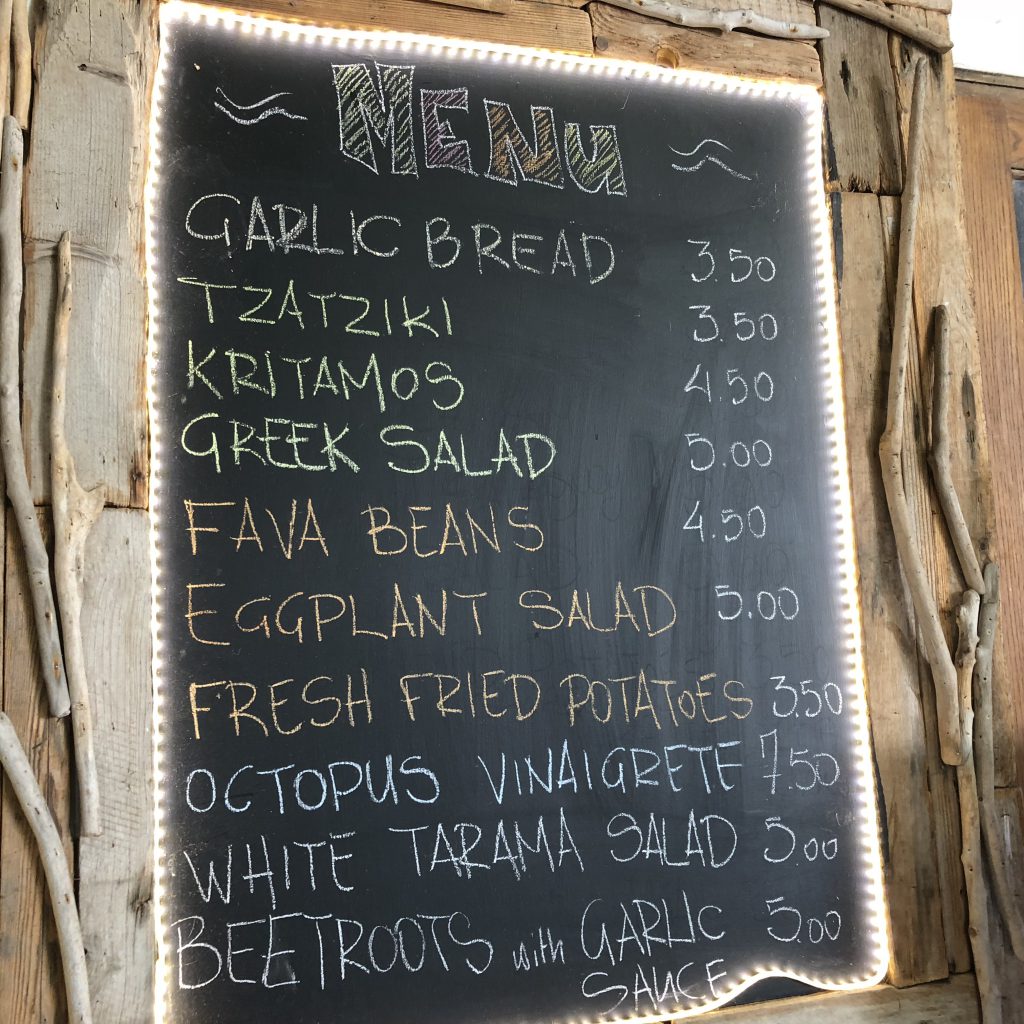 MENU
GARLIC BREAD 3.50
TZATZIKI 3.50
KRITAMOS 4.50
GREEK SALAD 5.00
FAVA BEANS 4.50
EGGPLANT SALAD 5.00
FRESH FRIED POTATOES 3.50
OCTOPUS VINAIGRETE 7.50
WHITE TARAMA SALAD 5.00
BEETROOTS with GARLIC 5.00
SAUCE